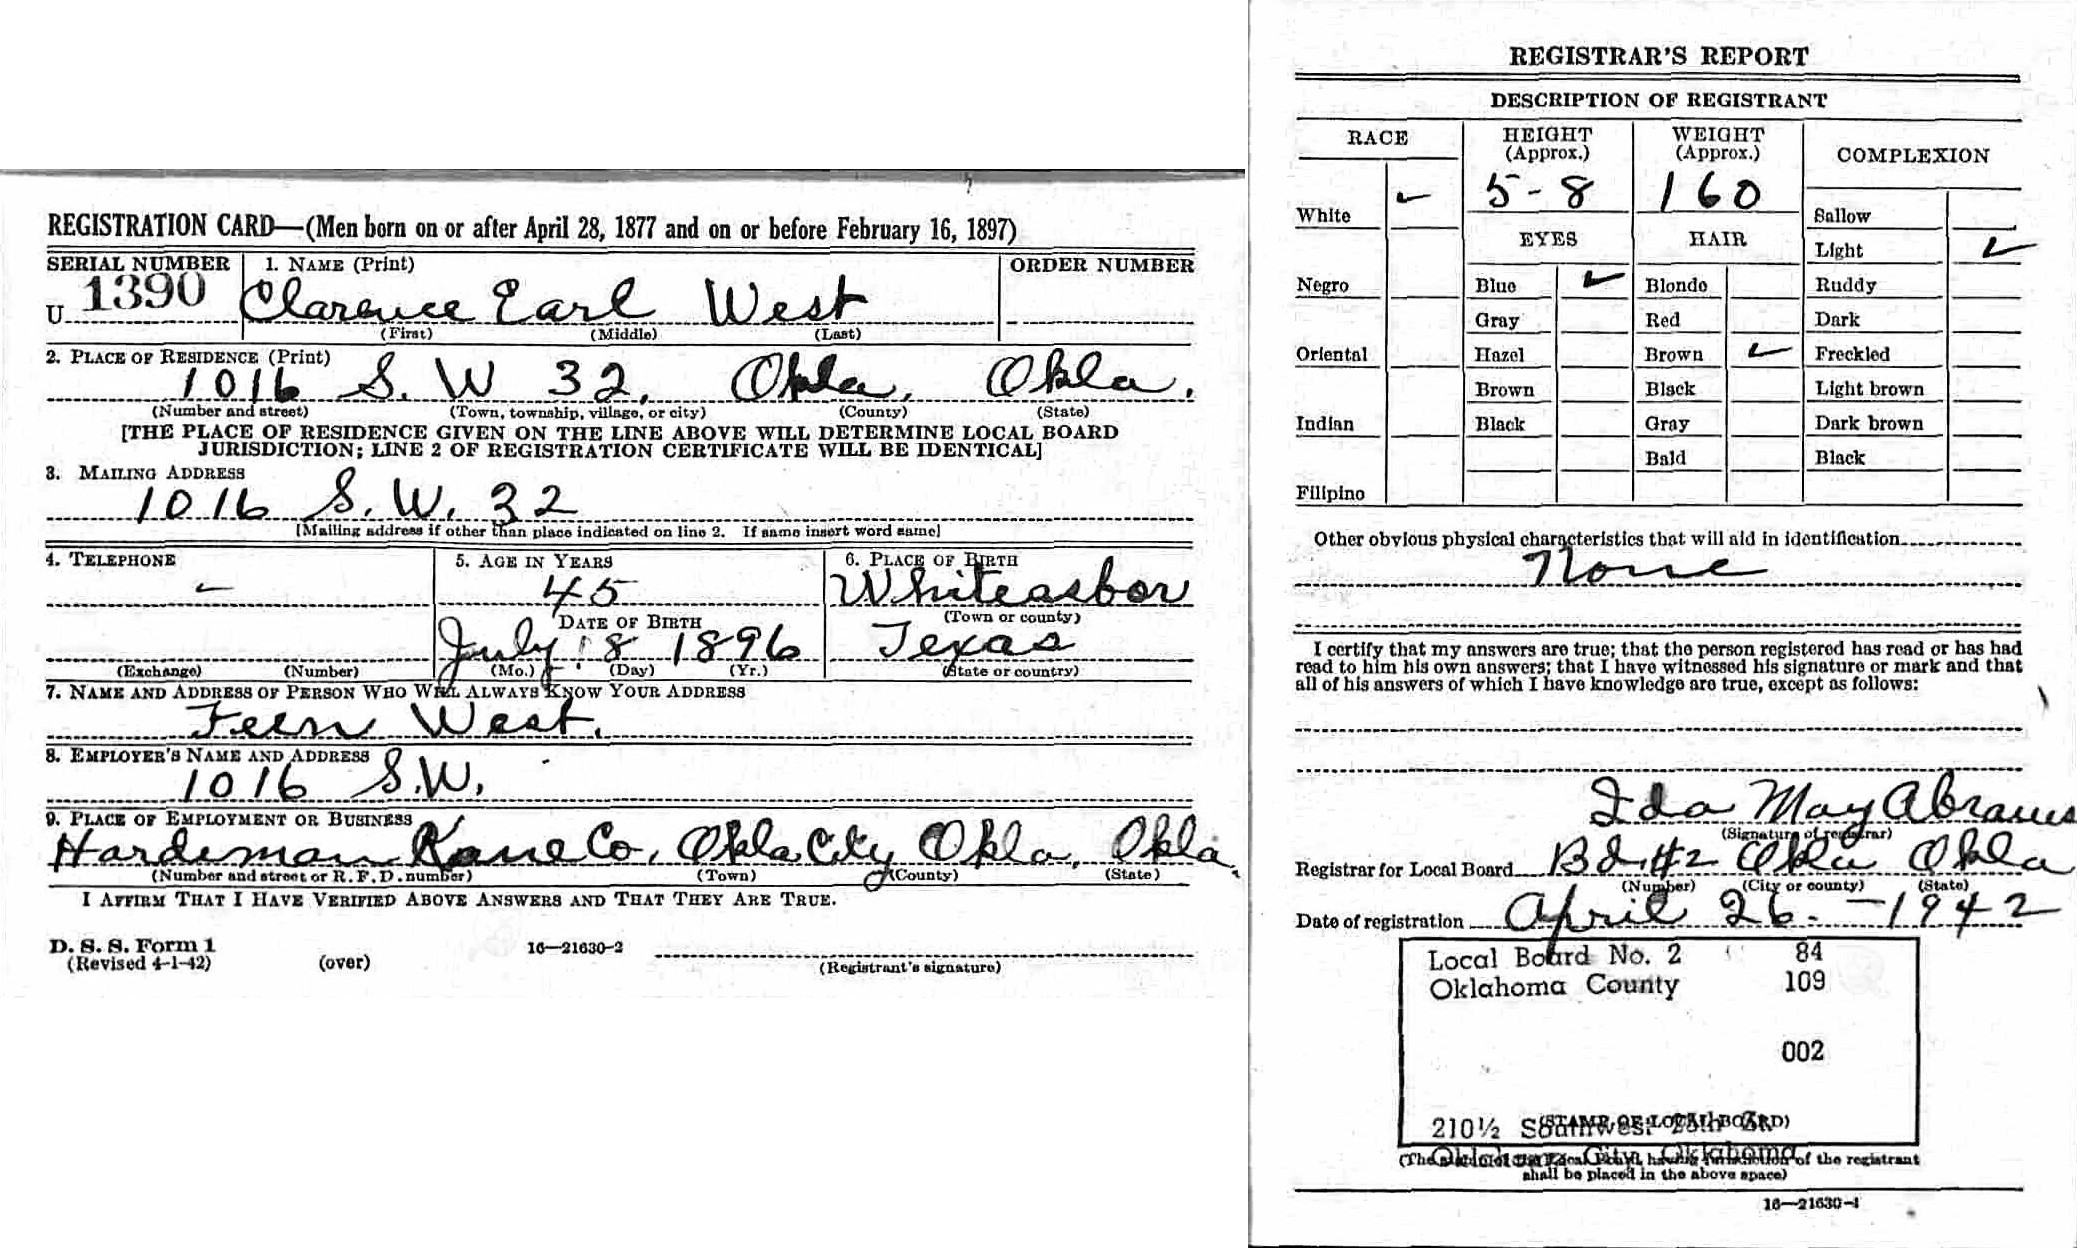 REGISTRATION CARD—(Men born on or after April 28, 1877 and on or before February 16, 1897)
SERIAL NUMBER 1. NAME (Print) ORDER NUMBER
U 1390 Clarence Earl West
(First) (Middle) (Last)
2. PLACE OF RESIDENCE (Print)
1016 S. W 32, Okla, Okla,
(Number and street) (Town, township, village, or city) (County) (State)
[THE PLACE OF RESIDENCE GIVEN ON THE LINE ABOVE WILL DETERMINE LOCAL BOARD
JURISDICTION; LINE 2 OF REGISTRATION CERTIFICATE WILL BE IDENTICAL]
3. MAILING ADDRESS
1016 S. W. 32
[Mailing address if other than place indicated on line 2. If same insert word same]
4. TELEPHONE 5. AGE IN YEARS 6. PLACE OF BIRTH
– 45 Whiteasbor
DATE OF BIRTH (Town or county)
July 18 1896 Texas
(Exchange) (Number) (Mo.) (Day) (Yr.) (State or country)
7. NAME AND ADDRESS OF PERSON WHO WILL ALWAYS KNOW YOUR ADDRESS
Fern West.
8. EMPLOYER'S NAME AND ADDRESS
1016 S.W.
9. PLACE OF EMPLOYMENT OR BUSINESS
Hardeman Kane Co, Okla City Okla, Okla.
(Number and street or R. F. D. number) (Town) (County) (State)
I AFFIRM THAT I HAVE VERIFIED ABOVE ANSWERS AND THAT THEY ARE TRUE.
D. S. S. Form 1
(Revised 4-1-42) (over) 16—21630-2
(Registrant's signature)
REGISTRAR'S REPORT
DESCRIPTION OF REGISTRANT
RACE HEIGHT (Approx.) WEIGHT (Approx.) COMPLEXION
5-8 160
White ✓ Sallow
EYES HAIR Light ✓
Negro Blue ✓ Blonde Ruddy
Gray Red Dark
Oriental Hazel Brown ✓ Freckled
Brown Black Light brown
Indian Black Gray Dark brown
Bald Black
Filipino
Other obvious physical characteristics that will aid in identification
None
I certify that my answers are true; that the person registered has read or has had
read to him his own answers; that I have witnessed his signature or mark and that
all of his answers of which I have knowledge are true, except as follows:
Ida May Abrams
(Signature of registrar)
Registrar for Local Board Bd #2 Okla Okla
(Number) (City or county) (State)
Date of registration April 26. – 1942
Local Board No. 2 84
Oklahoma County 109
002
210½ Southwest 25th St.
(STAMP OF LOCAL BOARD)
Oklahoma City, Oklahoma
(The stamp of the Local Board having jurisdiction of the registrant
shall be placed in the above space)
16—21630-1